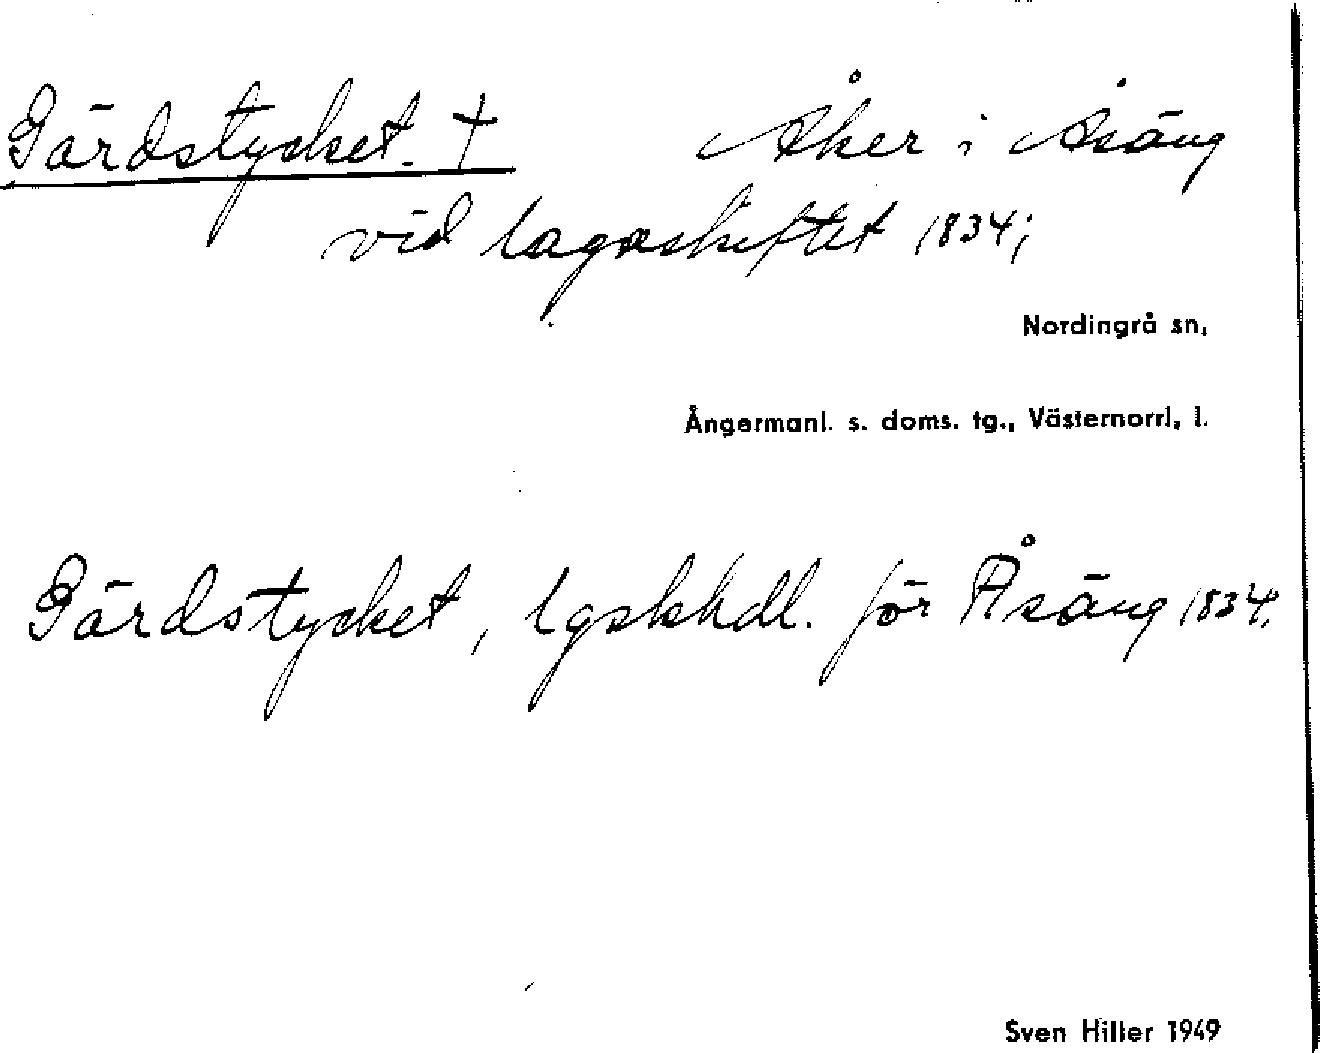 Gärdstycket. † Åker i Åsäng
vid lagaskiftet 1834;
Nordingrå sn,
Ångermanl. s. doms. tg., Västernorrl, l.
Gärdstycket, lgskhdl. för Åsäng 1834.
Sven Hiller 1949